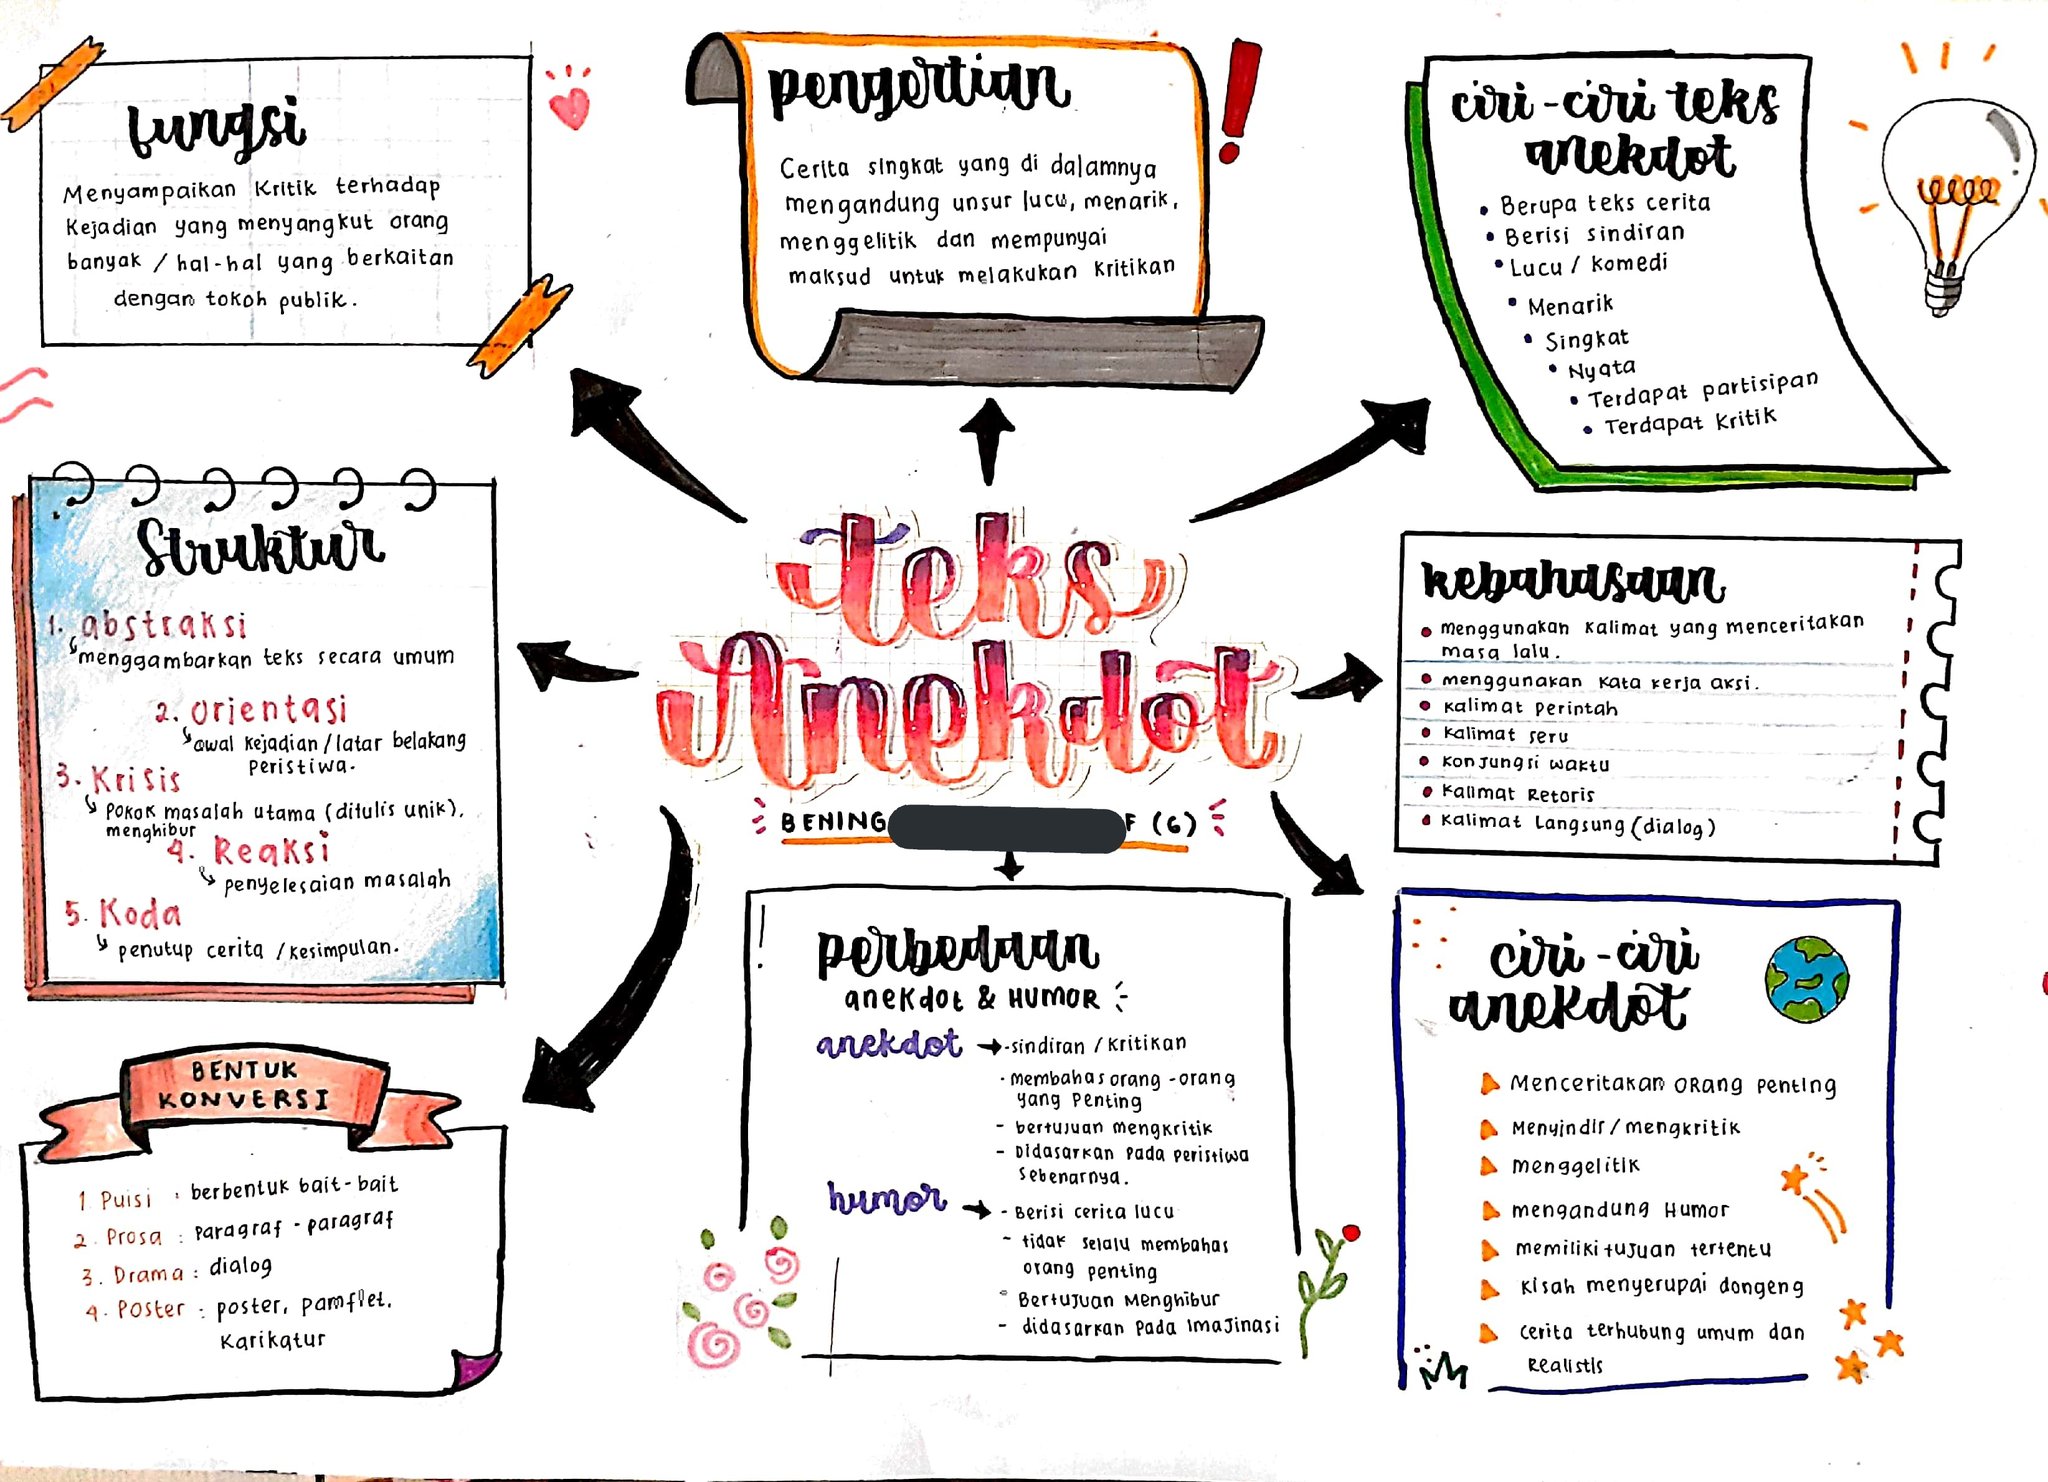 fungsi
Menyampaikan Kritik terhadap
Kejadian yang menyangkut orang
banyak / hal-hal yang berkaitan
dengan tokoh publik.
pengertian
Cerita singkat yang di dalamnya
mengandung unsur lucu, menarik,
menggelitik dan mempunyai
maksud untuk melakukan kritikan
ciri-ciri teks
anekdot
• Berupa teks cerita
• Berisi sindiran
• Lucu / komedi
• Menarik
• Singkat
• Nyata
• Terdapat partisipan
• Terdapat kritik
Struktur
1. abstraksi
menggambarkan teks secara umum
2. orientasi
awal kejadian / latar belakang
peristiwa.
3. Krisis
pokok masalah utama (ditulis unik).
menghibur
4. Reaksi
penyelesaian masalah
5. Koda
penutup cerita / kesimpulan.
teks
Anekdot
BENING F (6)
kebahasaan
• menggunakan kalimat yang menceritakan
masa lalu.
• menggunakan kata kerja aksi.
• kalimat perintah
• kalimat seru
• konjungsi waktu
• kalimat Retoris
• kalimat langsung (dialog)
BENTUK
KONVERSI
1. Puisi : berbentuk bait-bait
2. Prosa : paragraf - paragraf
3. Drama : dialog
4. Poster : poster, pamflet,
karikatur
perbedaan
anekdot & HUMOR
anekdot → - sindiran / kritikan
· membahas orang - orang
yang penting
- bertujuan mengkritik
- Didasarkan pada peristiwa
sebenarnya.
humor → - Berisi cerita lucu
- tidak selalu membahas
orang penting
° Bertujuan Menghibur
- didasarkan pada imajinasi
ciri-ciri
anekdot
Menceritakan orang penting
Menyindir / mengkritik
menggelitik
mengandung Humor
memiliki tujuan tertentu
kisah menyerupai dongeng
cerita terhubung umum dan
Realistis